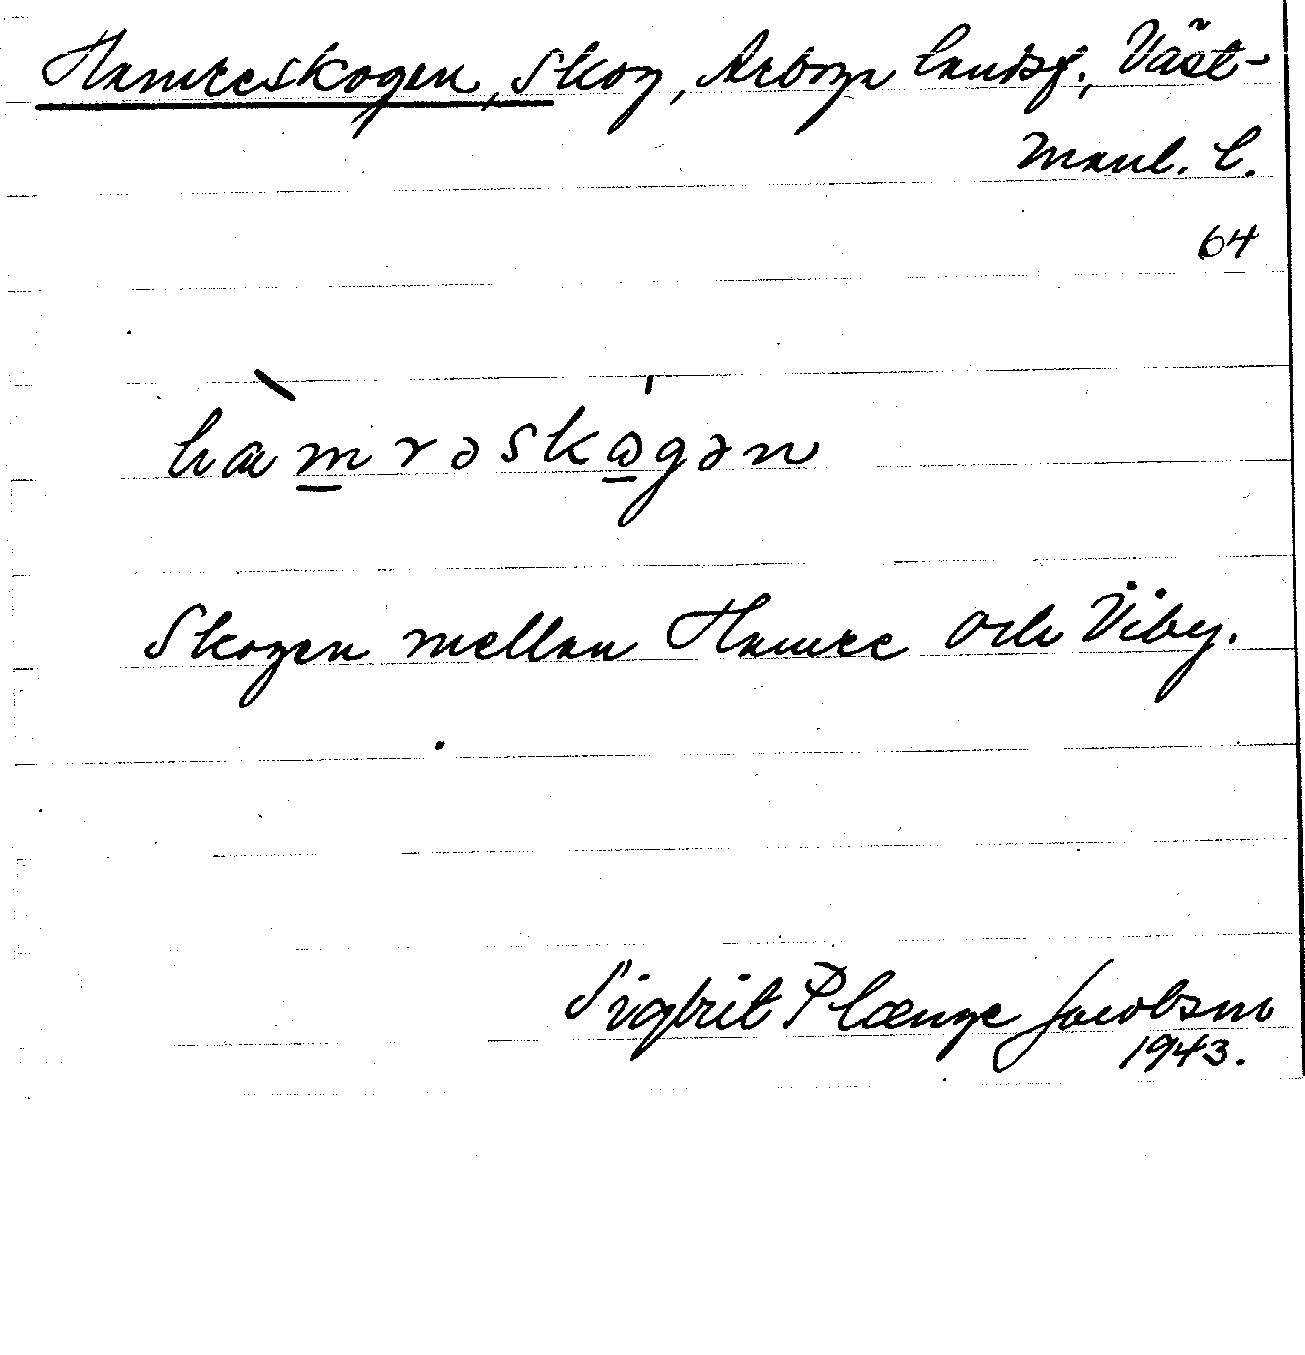 Hamreskogen, skog, Arboga landsf., Väst-
manl. l.
64
hamrəskɷgən
Skogen mellan Hamre och Viby.
Sigbrit Plænge Jacobson
1943.